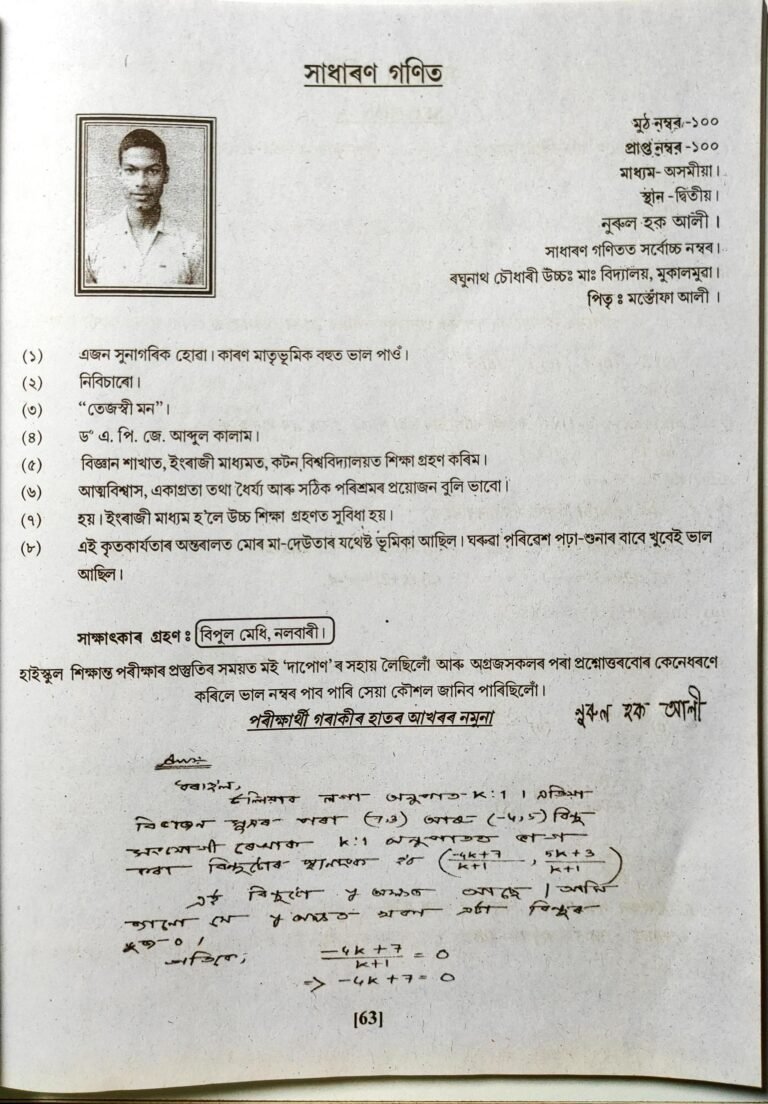 সাধাৰণ গণিত
মুঠ নম্বৰ -১০০
প্ৰাপ্ত নম্বৰ -১০০
মাধ্যম- অসমীয়া।
স্থান -দ্বিতীয়।
নুৰুল হক আলী ।
সাধাৰণ গণিতত সৰ্বোচ্চ নম্বৰ।
ৰঘুনাথ চৌধাৰী উচ্চঃ মাঃ বিদ্যালয়, মুকালমুৱা।
পিতৃ : মস্তোফা আলী ।
(১) এজন সুনাগৰিক হোৱা। কাৰণ মাতৃভূমিক বহুত ভাল পাওঁ।
(২) নিবিচাৰো।
(৩) “তেজস্বী মন”।
(৪) ড° এ. পি. জে. আব্দুল কালাম।
(৫) বিজ্ঞান শাখাত, ইংৰাজী মাধ্যমত, কটন বিশ্ববিদ্যালয়ত শিক্ষা গ্ৰহণ কৰিম।
(৬) আত্মবিশ্বাস, একাগ্ৰতা তথা ধৈৰ্য্য আৰু সঠিক পৰিশ্ৰমৰ প্ৰয়োজন বুলি ভাবো।
(৭) হয়। ইংৰাজী মাধ্যম হ’লে উচ্চ শিক্ষা গ্ৰহণত সুবিধা হয়।
(৮) এই কৃতকাৰ্যতাৰ অন্তৰালত মোৰ মা-দেউতাৰ যথেষ্ট ভূমিকা আছিল। ঘৰুৱা পৰিৱেশ পঢ়া-শুনাৰ বাবে খুবেই ভাল
আছিল।
সাক্ষাৎকাৰ গ্ৰহণ : বিপুল মেধি, নলবাৰী।
হাইস্কুল শিক্ষান্ত পৰীক্ষাৰ প্ৰস্তুতিৰ সময়ত মই ‘দাপোণ’ৰ সহায় লৈছিলোঁ আৰু অগ্ৰজসকলৰ পৰা প্ৰশ্নোত্তৰবোৰ কেনেধৰণে
কৰিলে ভাল নম্বৰ পাব পাৰি সেয়া কৌশল জানিব পাৰিছিলোঁ।
পৰীক্ষাৰ্থী গৰাকীৰ হাতৰ আখৰৰ নমুনা
নুৰুল হক আলী
Ans:
ধৰাহল,
অনুপাত k:1 ।
বিভাজন সূত্ৰৰ পৰা (7,3) আৰু (-4,5) বিন্দু
সংযোগী ৰেখাক k:1 অনুপাতত ভাগ
কৰা বিন্দুটোৰ স্থানাংক হব (-4k+7/k+1, 5k+3/k+1)
এই বিন্দুটো y অক্ষত আছে । আমি
জানো যে y অক্ষত থকা এটা বিন্দুৰ
ভুজ 0,
-4k+7/k+1 = 0
=> -4k+7 = 0
[63]